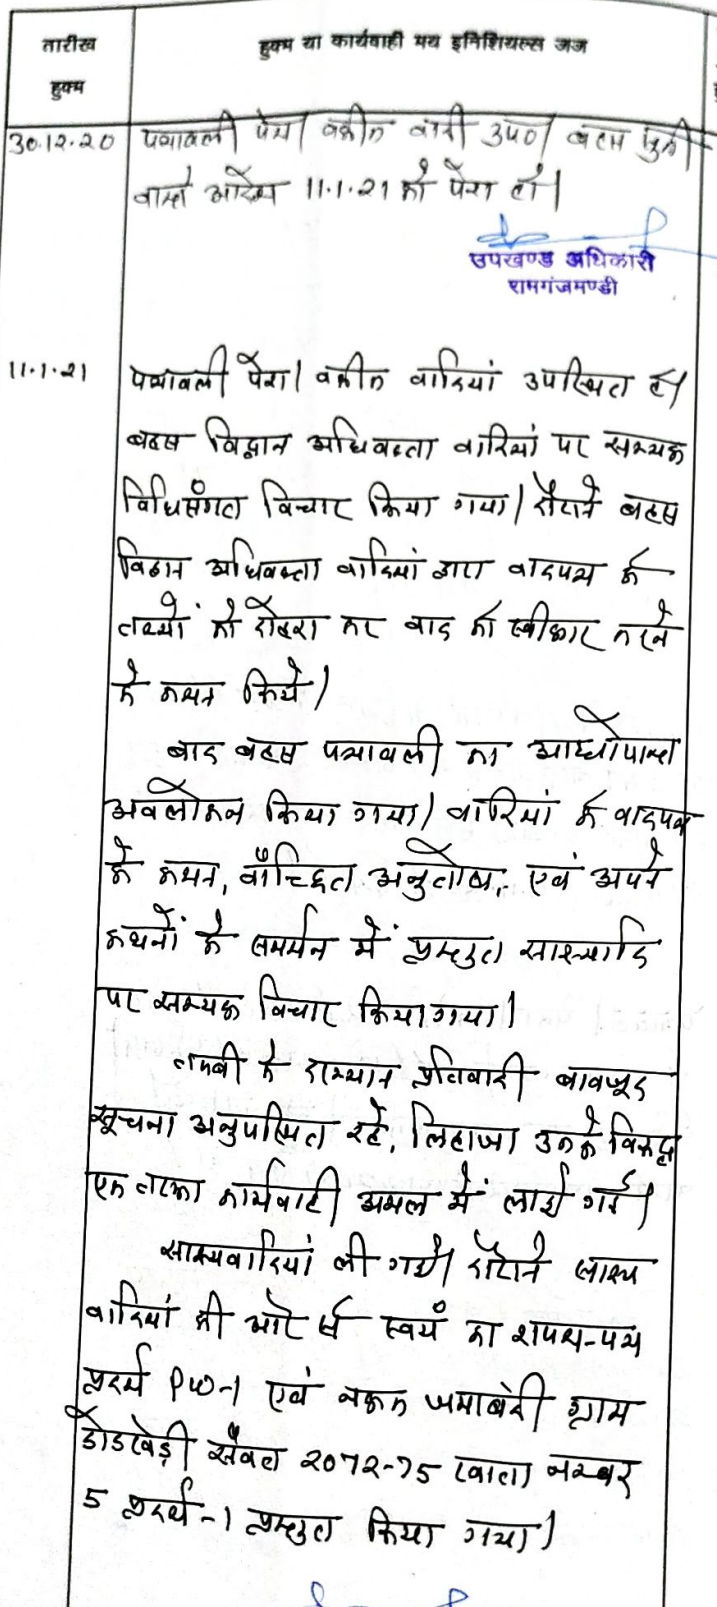 तारीख
हुक्म
हुक्म या कार्यवाही मय इनिशियल्स जज
30.12.20 पत्रावली पेश। वकील वादी उप०। बहस सुनी
वास्ते आदेश 11.1.21 को पेश हो।
उपखण्ड अधिकारी
रामगंजमण्डी
11.1.21 पत्रावली पेश। वकील वादियां उपस्थित है।
बहस विद्वान अधिवक्ता वादियां पर सम्यक
विधिसंगत विचार किया गया। दौराने बहस
विद्वान अधिवक्ता वादियां द्वारा वादपत्र के
तथ्यों को दोहरा कर वाद को स्वीकार करने
के कथन किये।
बाद बहस पत्रावली का आद्योपान्त
अवलोकन किया गया। वादियां के वादपत्र
के कथन, वाँच्छित अनुतोष, एवं अपने
कथनों के समर्थन में प्रस्तुत साक्ष्यादि
पर सम्यक विचार किया गया।
तलबी के दरम्यान प्रतिवादी बावजूद
सूचना अनुपस्थित रहे, लिहाजा उनके विरूद्ध
एक तरफा कार्यवाही अमल में लाई गई।
साक्ष्यवादियां ली गयी। दौराने साक्ष्य
वादियां की ओर से स्वयं का शपथ-पत्र
प्रदर्श PW-1 एवं नकल जमाबंदी ग्राम
डोडखेड़ी संवत 2072-75 खाता नम्बर
5 प्रदर्श-1 प्रस्तुत किया गया।